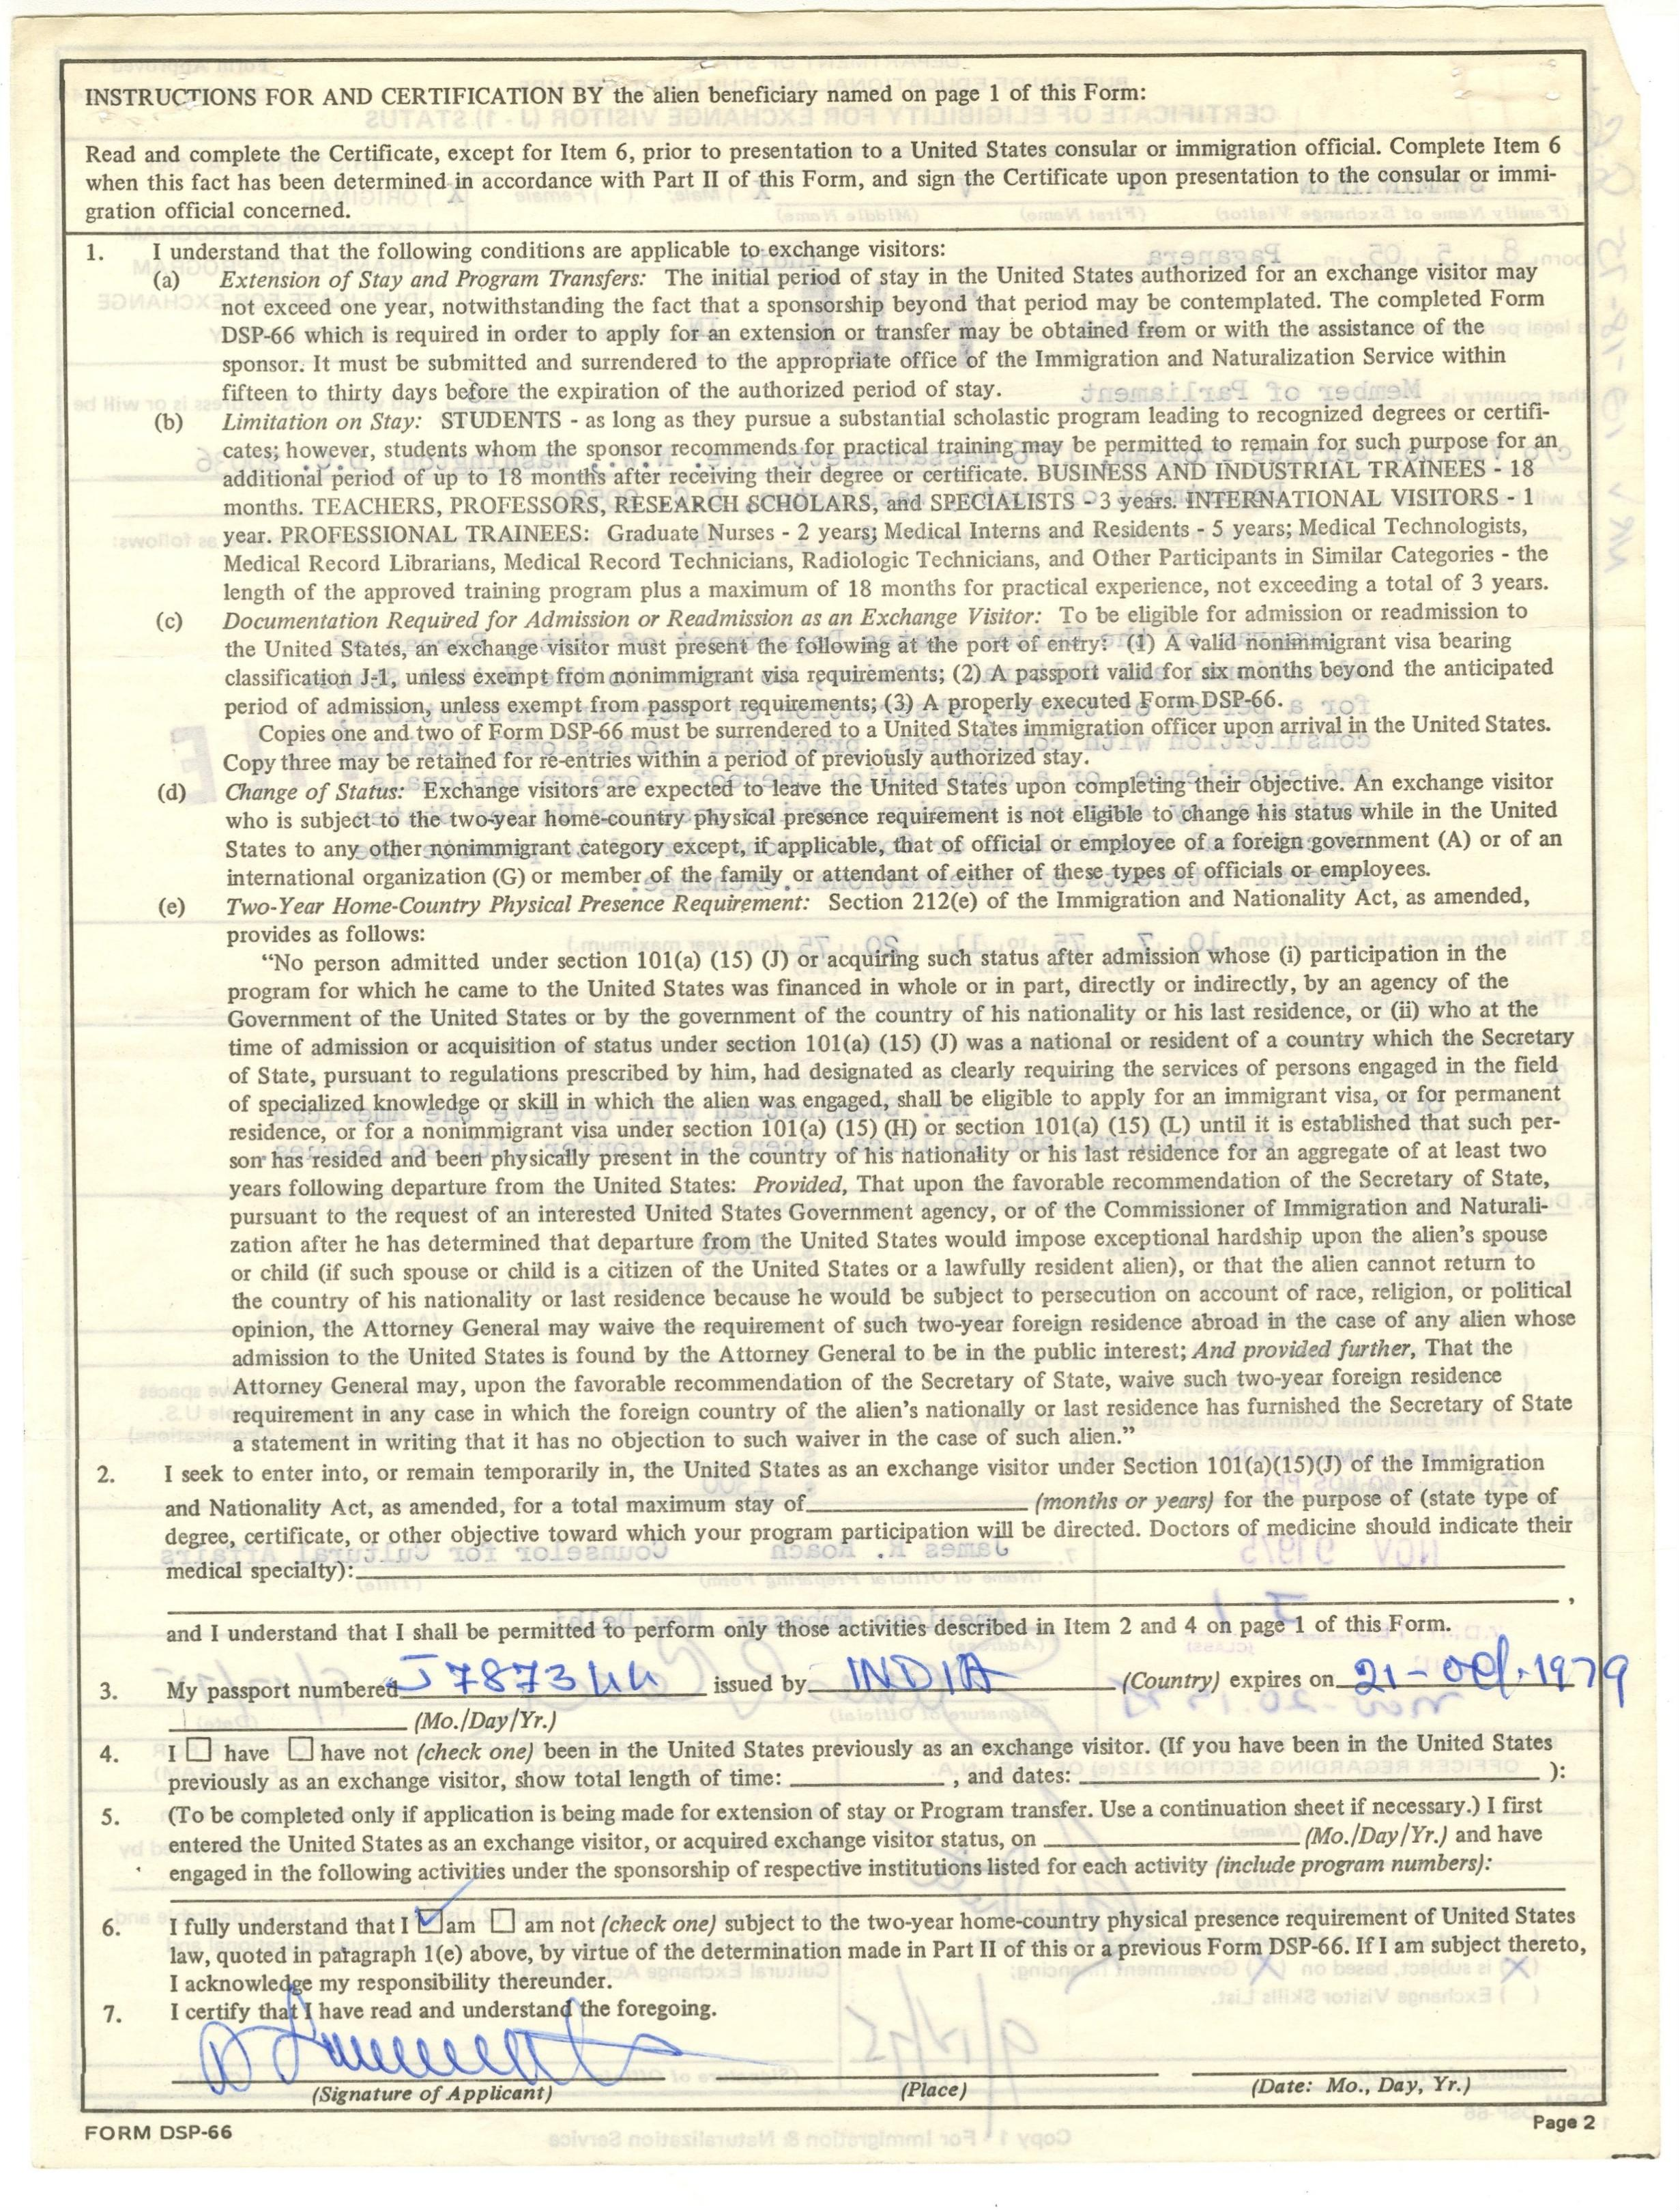 INSTRUCTIONS FOR AND CERTIFICATION BY the alien beneficiary named on page 1 of this Form:
Read and complete the Certificate, except for Item 6, prior to presentation to a United States consular or immigration official. Complete Item 6
when this fact has been determined in accordance with Part II of this Form, and sign the Certificate upon presentation to the consular or immi-
gration official concerned.
1. I understand that the following conditions are applicable to exchange visitors:
(a) Extension of Stay and Program Transfers: The initial period of stay in the United States authorized for an exchange visitor may
not exceed one year, notwithstanding the fact that a sponsorship beyond that period may be contemplated. The completed Form
DSP-66 which is required in order to apply for an extension or transfer may be obtained from or with the assistance of the
sponsor. It must be submitted and surrendered to the appropriate office of the Immigration and Naturalization Service within
fifteen to thirty days before the expiration of the authorized period of stay.
(b) Limitation on Stay: STUDENTS - as long as they pursue a substantial scholastic program leading to recognized degrees or certifi-
cates; however, students whom the sponsor recommends for practical training may be permitted to remain for such purpose for an
additional period of up to 18 months after receiving their degree or certificate. BUSINESS AND INDUSTRIAL TRAINEES - 18
months. TEACHERS, PROFESSORS, RESEARCH SCHOLARS, and SPECIALISTS - 3 years. INTERNATIONAL VISITORS - 1
year. PROFESSIONAL TRAINEES: Graduate Nurses - 2 years; Medical Interns and Residents - 5 years; Medical Technologists,
Medical Record Librarians, Medical Record Technicians, Radiologic Technicians, and Other Participants in Similar Categories - the
length of the approved training program plus a maximum of 18 months for practical experience, not exceeding a total of 3 years.
(c) Documentation Required for Admission or Readmission as an Exchange Visitor: To be eligible for admission or readmission to
the United States, an exchange visitor must present the following at the port of entry: (1) A valid nonimmigrant visa bearing
classification J-1, unless exempt from nonimmigrant visa requirements; (2) A passport valid for six months beyond the anticipated
period of admission, unless exempt from passport requirements; (3) A properly executed Form DSP-66.
Copies one and two of Form DSP-66 must be surrendered to a United States immigration officer upon arrival in the United States.
Copy three may be retained for re-entries within a period of previously authorized stay.
(d) Change of Status: Exchange visitors are expected to leave the United States upon completing their objective. An exchange visitor
who is subject to the two-year home-country physical presence requirement is not eligible to change his status while in the United
States to any other nonimmigrant category except, if applicable, that of official or employee of a foreign government (A) or of an
international organization (G) or member of the family or attendant of either of these types of officials or employees.
(e) Two-Year Home-Country Physical Presence Requirement: Section 212(e) of the Immigration and Nationality Act, as amended,
provides as follows:
"No person admitted under section 101(a) (15) (J) or acquiring such status after admission whose (i) participation in the
program for which he came to the United States was financed in whole or in part, directly or indirectly, by an agency of the
Government of the United States or by the government of the country of his nationality or his last residence, or (ii) who at the
time of admission or acquisition of status under section 101(a) (15) (J) was a national or resident of a country which the Secretary
of State, pursuant to regulations prescribed by him, had designated as clearly requiring the services of persons engaged in the field
of specialized knowledge or skill in which the alien was engaged, shall be eligible to apply for an immigrant visa, or for permanent
residence, or for a nonimmigrant visa under section 101(a) (15) (H) or section 101(a) (15) (L) until it is established that such per-
son has resided and been physically present in the country of his nationality or his last residence for an aggregate of at least two
years following departure from the United States: Provided, That upon the favorable recommendation of the Secretary of State,
pursuant to the request of an interested United States Government agency, or of the Commissioner of Immigration and Naturali-
zation after he has determined that departure from the United States would impose exceptional hardship upon the alien's spouse
or child (if such spouse or child is a citizen of the United States or a lawfully resident alien), or that the alien cannot return to
the country of his nationality or last residence because he would be subject to persecution on account of race, religion, or political
opinion, the Attorney General may waive the requirement of such two-year foreign residence abroad in the case of any alien whose
admission to the United States is found by the Attorney General to be in the public interest; And provided further, That the
Attorney General may, upon the favorable recommendation of the Secretary of State, waive such two-year foreign residence
requirement in any case in which the foreign country of the alien's nationally or last residence has furnished the Secretary of State
a statement in writing that it has no objection to such waiver in the case of such alien."
2. I seek to enter into, or remain temporarily in, the United States as an exchange visitor under Section 101(a)(15)(J) of the Immigration
and Nationality Act, as amended, for a total maximum stay of (months or years) for the purpose of (state type of
degree, certificate, or other objective toward which your program participation will be directed. Doctors of medicine should indicate their
medical specialty): ,
and I understand that I shall be permitted to perform only those activities described in Item 2 and 4 on page 1 of this Form.
3. My passport numbered J787344 issued by INDIA (Country) expires on 21-Oct.1979
(Mo./Day/Yr.)
4. I have have not (check one) been in the United States previously as an exchange visitor. (If you have been in the United States
previously as an exchange visitor, show total length of time: , and dates: ):
5. (To be completed only if application is being made for extension of stay or Program transfer. Use a continuation sheet if necessary.) I first
entered the United States as an exchange visitor, or acquired exchange visitor status, on (Mo./Day/Yr.) and have
engaged in the following activities under the sponsorship of respective institutions listed for each activity (include program numbers):
6. I fully understand that I am am not (check one) subject to the two-year home-country physical presence requirement of United States
law, quoted in paragraph 1(e) above, by virtue of the determination made in Part II of this or a previous Form DSP-66. If I am subject thereto,
I acknowledge my responsibility thereunder.
7. I certify that I have read and understand the foregoing.
(Signature of Applicant) (Place) (Date: Mo., Day, Yr.)
FORM DSP-66 Page 2